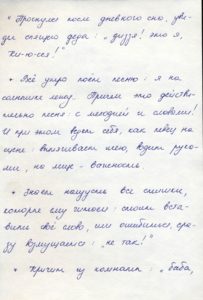 * Проснулся после дневного сна, уви-
дел спящего деда: „дидя! это я,
Ки-ю-ся!"
* Всё утро поёт песню: я на
солнышке лежу. Причем это действи-
тельно песня: с мелодией и словами!
И при этом ведет себя, как певец на
сцене: вытягивает шею, водит рука-
ми, на лице - важность.
* Знает наизусть все стишки,
которые ему читают: стоит вста-
вить своё слово, или ошибиться, сра-
зу возмущается: „не так!"
* Кричит из комнаты: „баба,